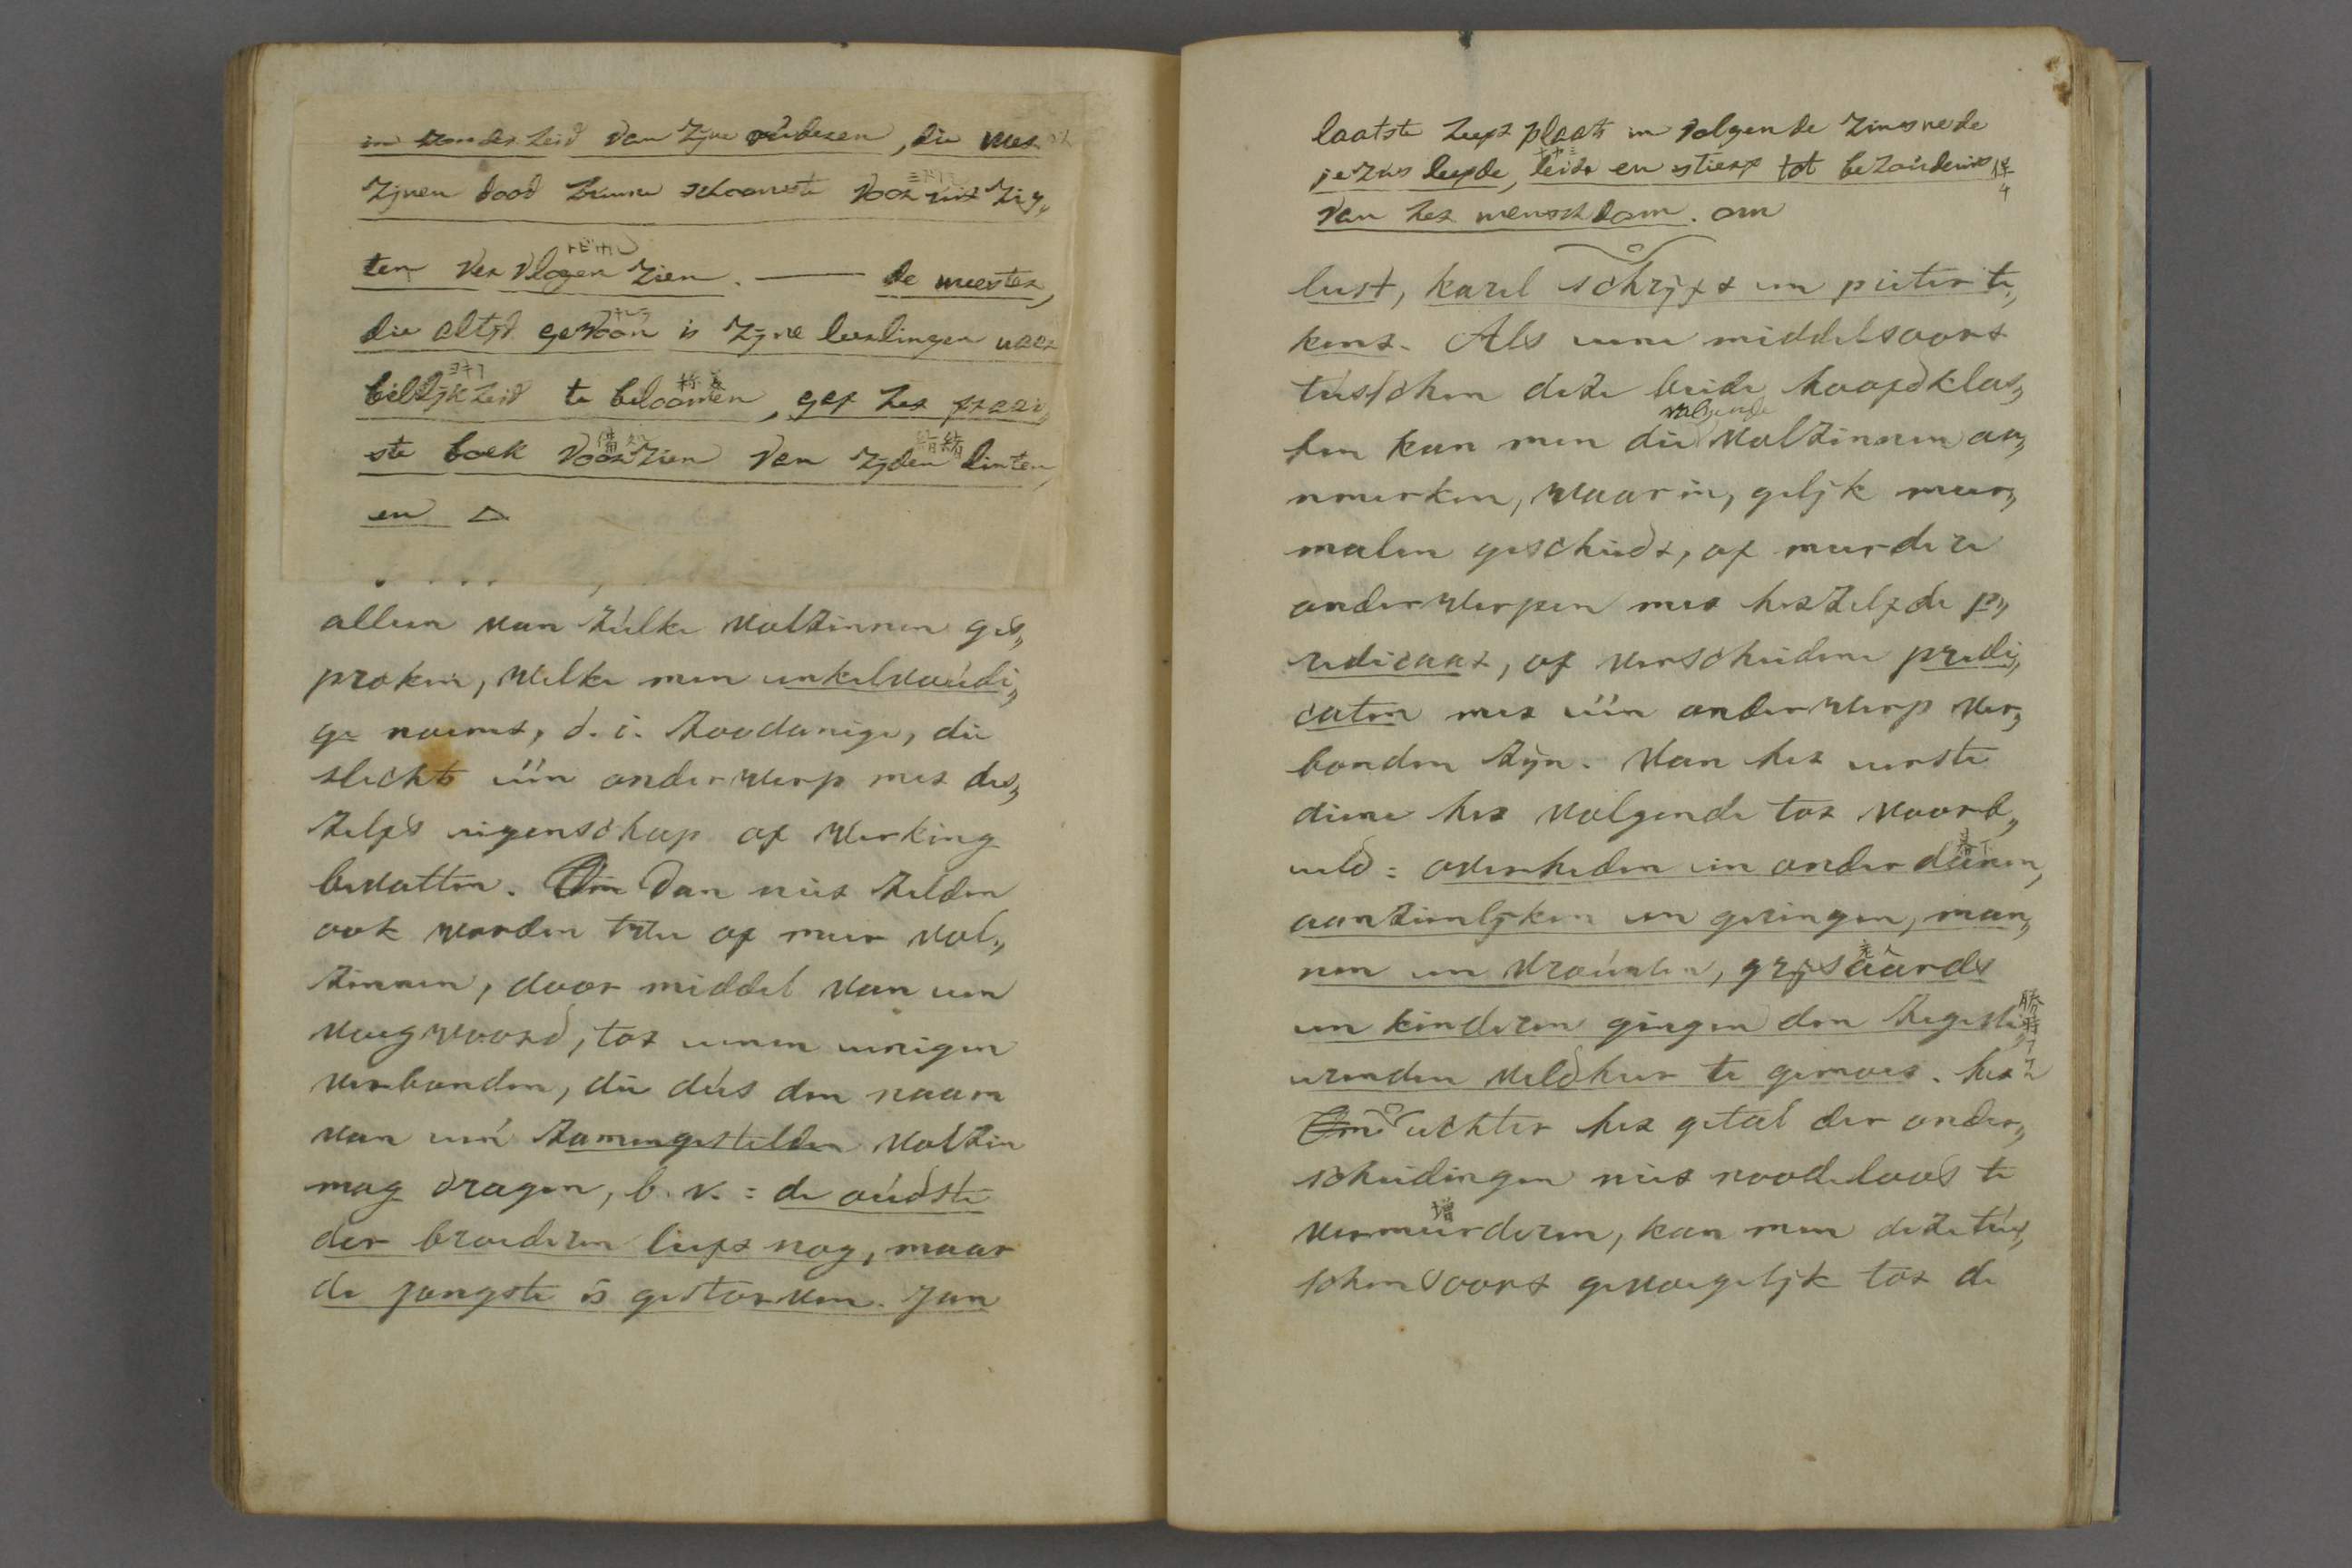 in zonderheid van zijne ouderen, die met
zijnen dood hunne schoonste vooruitzig„
ten vervlogen zien. — de meester,
die altijd gewoon is zijne leerlingen naar
billijkheid te beloonen, gaf het fraai„
ste boek voorzien van zijden linten,
en △
alleen van zulke volzinnen ges„
proken, welke men enkelvoudi„
ge noemt, d. i. zoodanige, die
slechts één onderwerp met des„
zelfs eigenschap of werking
bevatten. Dan niet zelden
ook worden twee of meer vol„
zinnen, door middel van een
voegwoord, tot eenen eenigen
verbonden, die dus den naam
van een zamengestelden volzin
mag dragen, b. v. : de oudste
der broederen leeft nog, maar
de jongste is gestorven. Jan
laatste heeft plaats in volgende zinsnede
jezus leefde, leide en stierf tot behoudenis
van het menschdom. om
leest, karel schrijft en pieter te„
kent. Als eene middelsoort
tusschen deze beide hoofdklas„
sen kan men die volgende volzinnen aa„
nmerken, waarin, gelijk meer„
malen geschiedt, of meerdere
onderwerpen met hetzelfde p„
redicaat, of verscheidene predi„
caten met één onderwerp ver„
bonden zijn. Van het eerste
diene het volgende tot voorb„
eeld : overheden en onderdanen,
aanzienlijken en geringen, man„
nen en vrouwen, grijsaards
en kinderen gingen den zegevi„
erenden veldheer te gemoet. het
Om echter het getal der onder„
scheidingen niet noodeloos te
vermeerderen, kan men deze tus„
schensoort gevoegelijk tot de